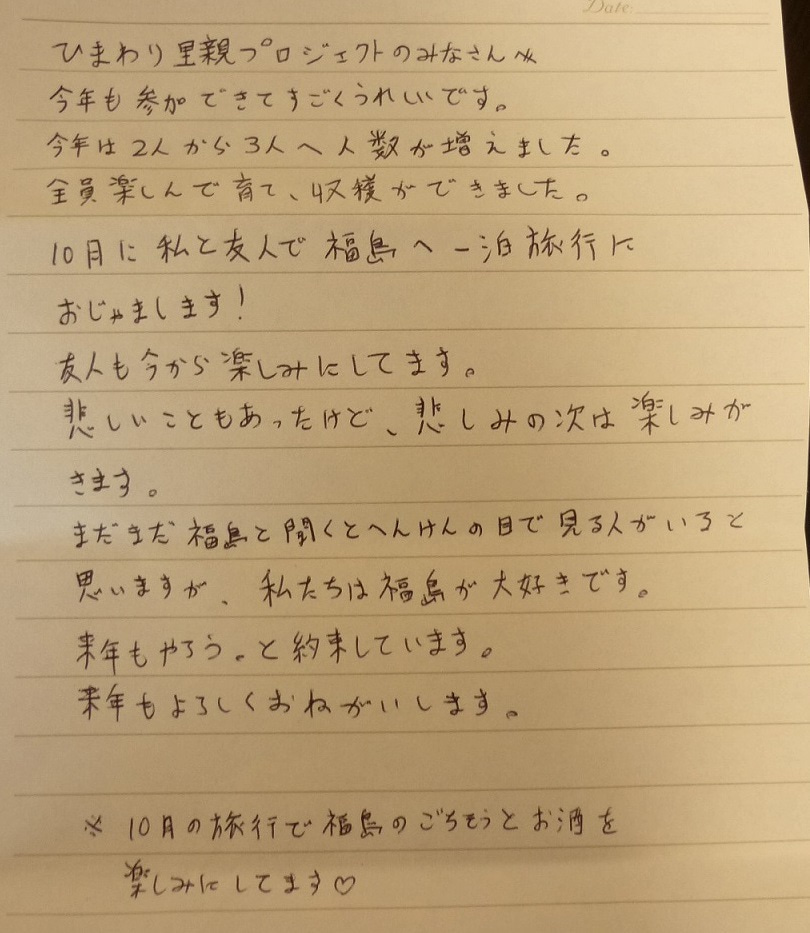 Date
ひまわり里親プロジェクトのみなさんへ
今年も参加できてすごくうれしいです。
今年は2人から3人へ人数が増えました。
全員楽しんで育て、収穫ができました。
10月に私と友人で福島へ一泊旅行に
おじゃまします!
友人も今から楽しみにしてます。
悲しいこともあったけど、悲しみの次は楽しみが
きます。
まだまだ福島と聞くとへんけんの目で見る人がいると
思いますが、私たちは福島が大好きです。
来年もやろう。と約束しています。
来年もよろしくおねがいします。
※10月の旅行で福島のごちそうとお酒を
楽しみにしてます♡